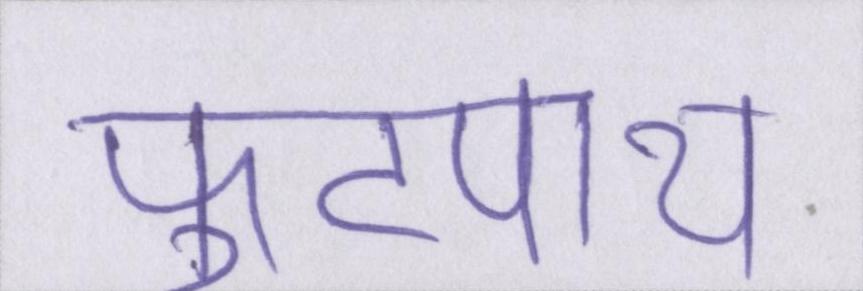 फुटपाथ